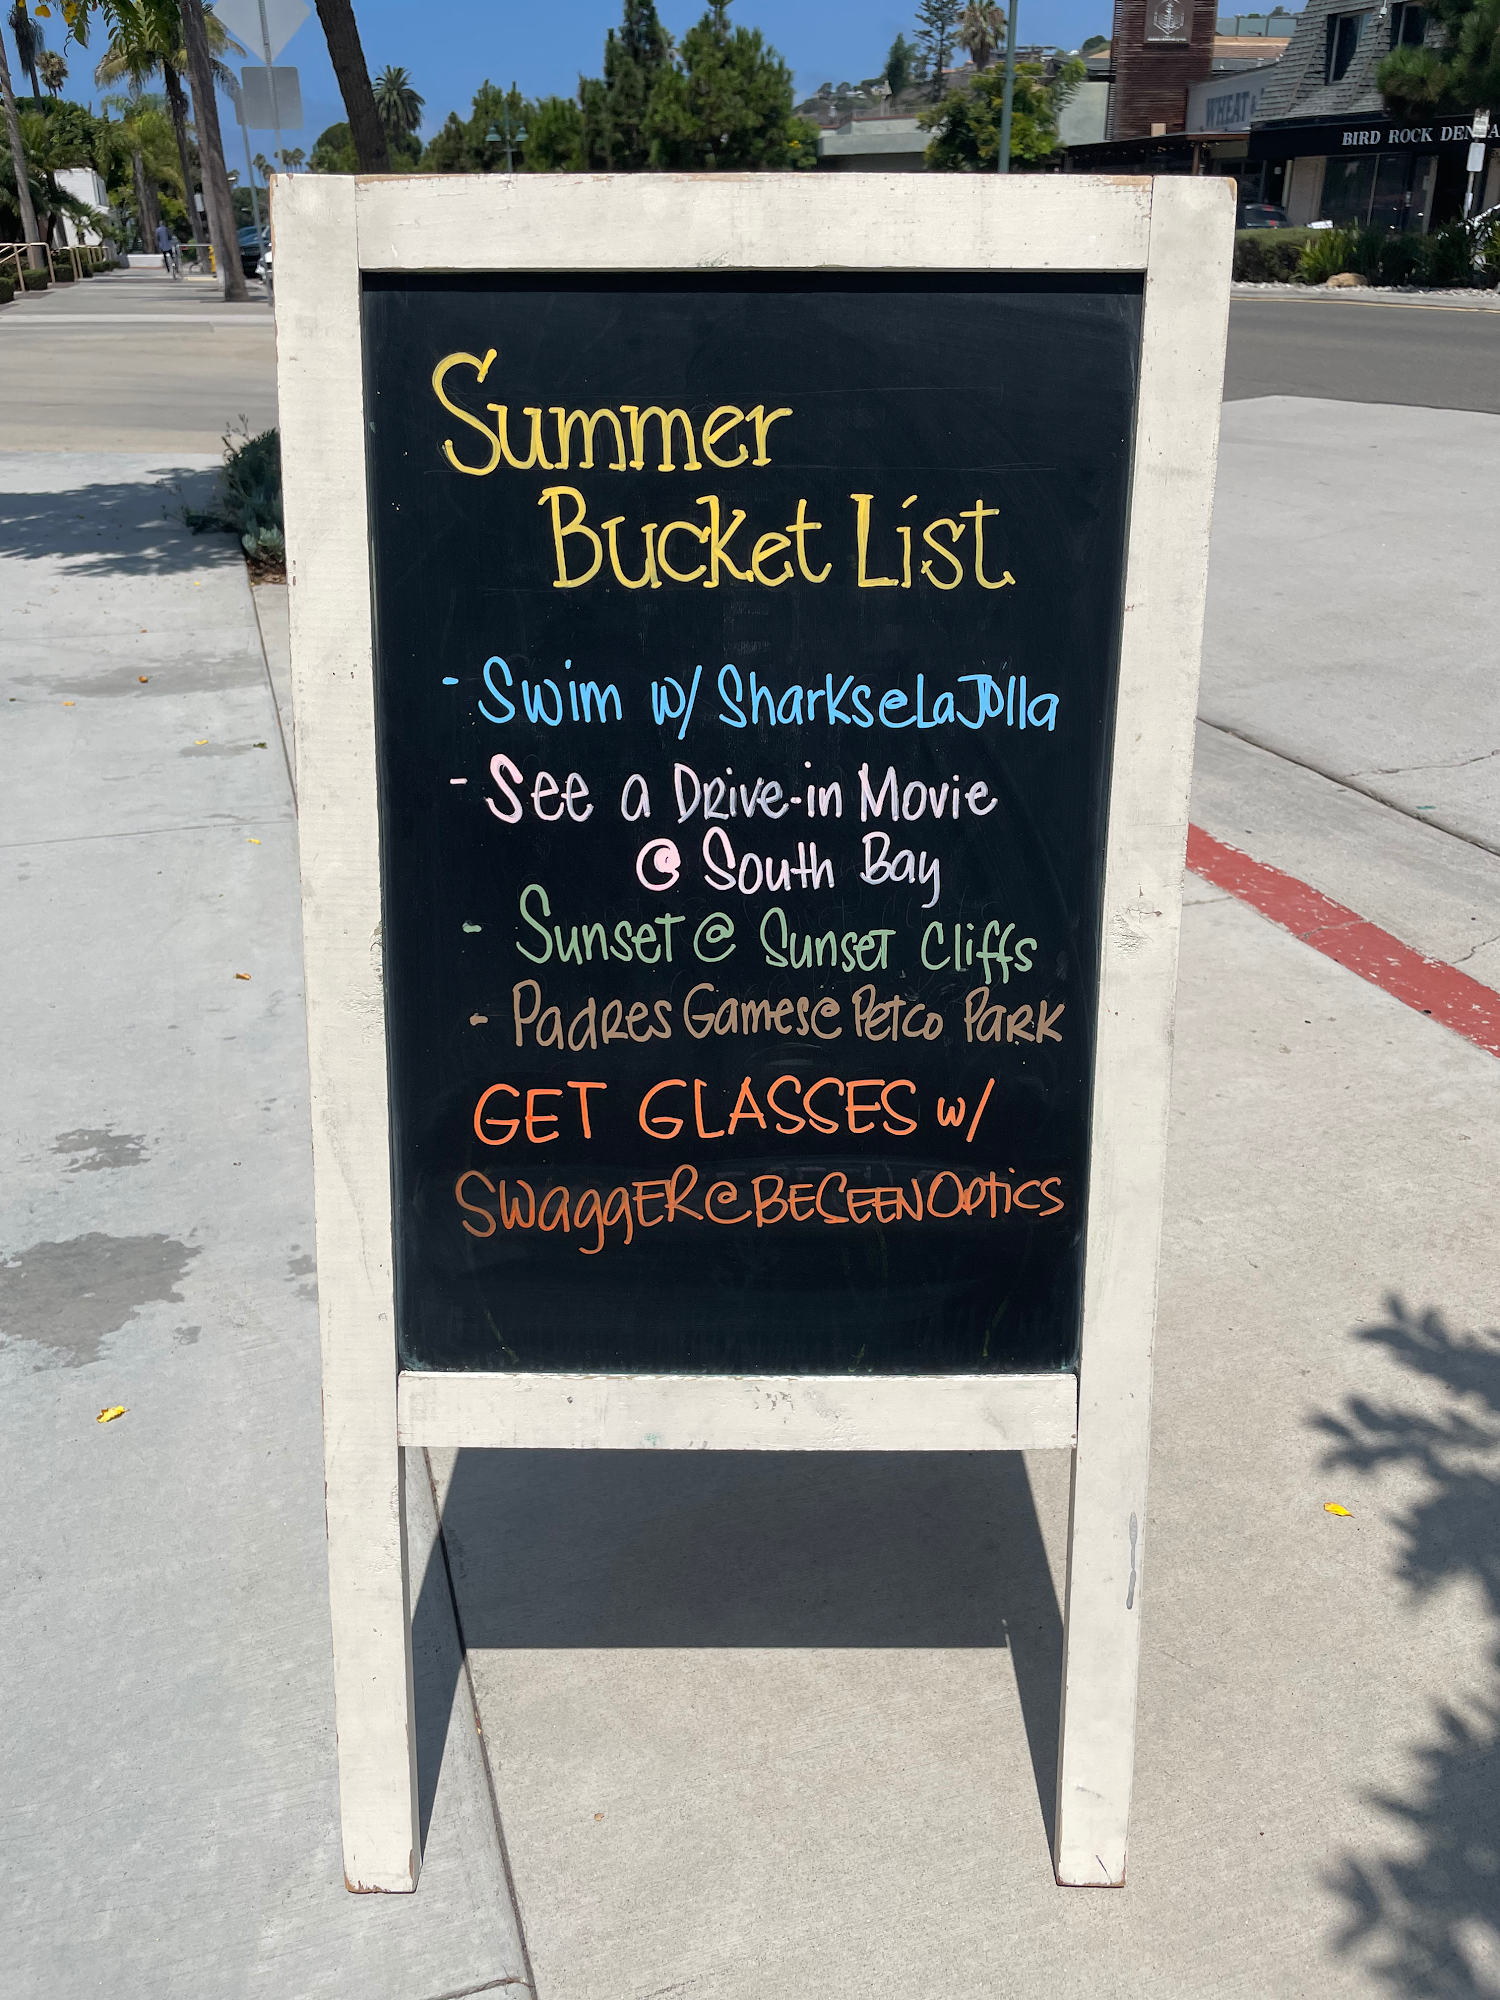 WHEAT &
BIRD ROCK DENTA
Summer
Bucket List
- Swim w/ Sharks@LaJolla
- See a Drive-in Movie
@ South Bay
- Sunset @ Sunset Cliffs
- Padres Games@ Petco Park
GET GLASSES w/
SWaggER@BESEENOptics